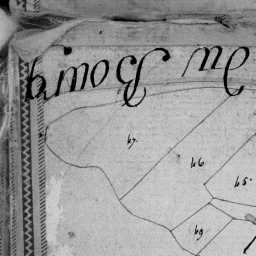 du Bourg
67.
66
65.
69